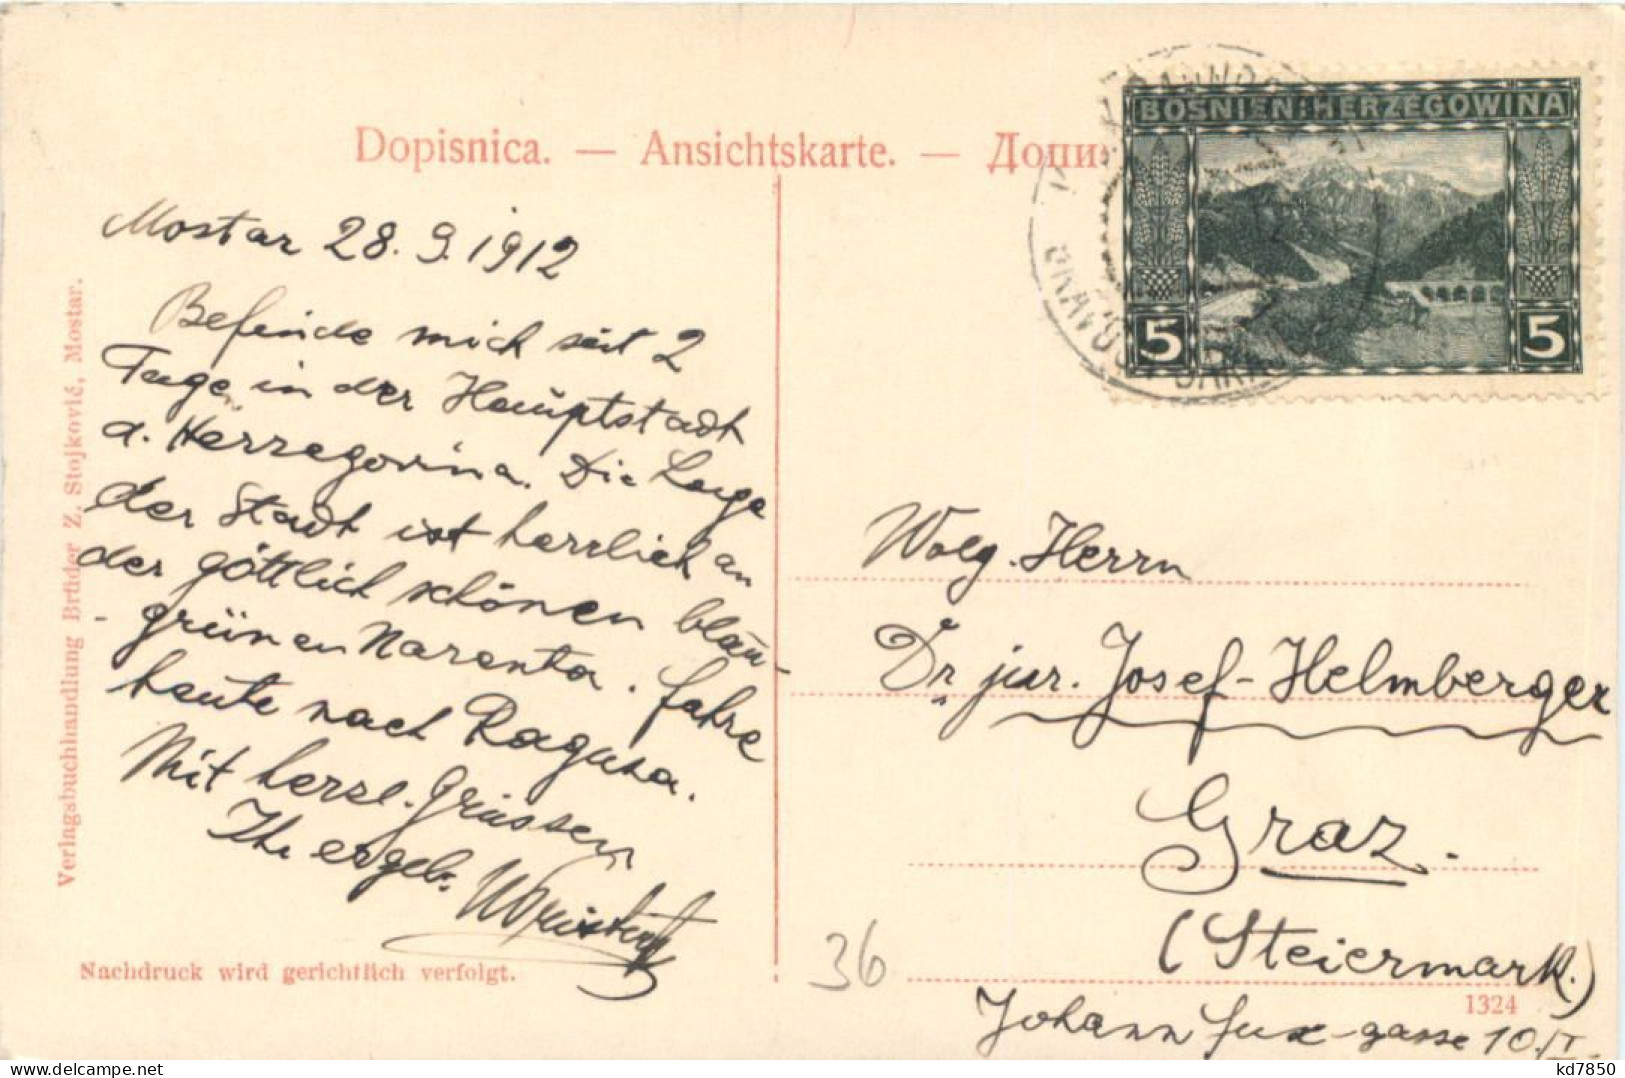 Dopisnica. — Ansichtskarte. — Допи
BOSNIEN-HERZEGOWINA
5 5
Mostar 28. 9. 1912
Befinde mich seit 2
Tage in der Hauptstadt
d. Herzegovina. Die Lage
der Stadt ist herrlich an
der göttlich schönen blau-
-grünen Narenta. Fahre
heute nach Ragusa.
Mit herzl. Grüssen
Ihr ergeb.
Verlagsbuchhandlung Brüder Z. Stojković, Mostar.
Nachdruck wird gerichtlich verfolgt.
Wolg. Herrn
Dr jur. Josef Helmberger
Graz.
(Steiermark.)
Johann Fux-gasse 10./I.
36
1324
www.delcampe.net
kd7850